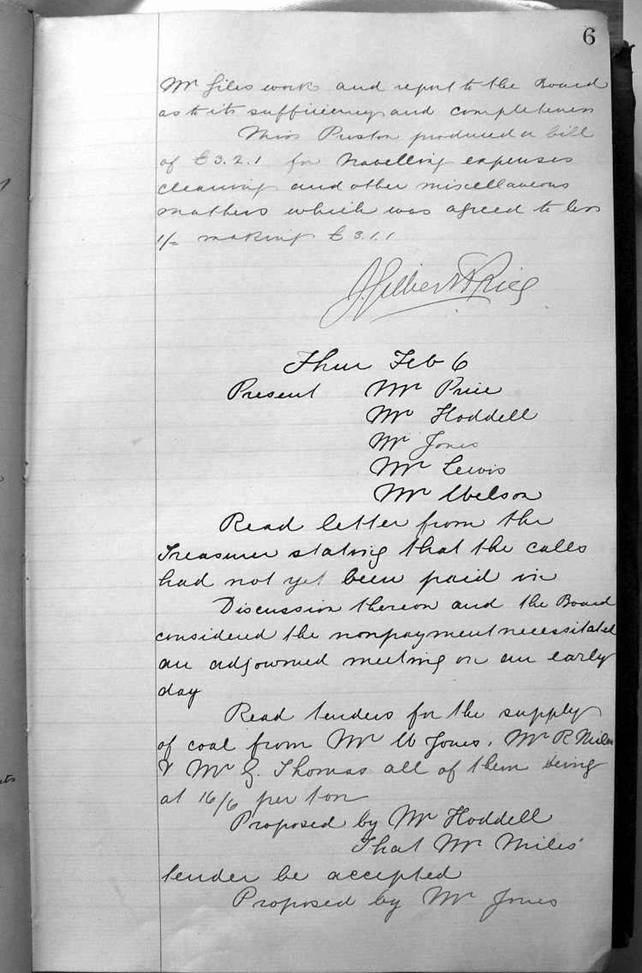 6
Mr Giles work and report to the Board
as to its sufficiency and completeness
Miss Preston produced a bill
of £3.2.1 for travelling expenses
cleaning and other miscellaneous
matters which was agreed to less
1/- making £3.1.1
Thur Feb 6
Present Mr Price
Mr Hoddell
Mr Jones
Mr Lewis
Mr
Read letter from the
Treasurer stating that the calls
had not yet been paid in
Discussion thereon and the Board
considered the nonpayment necessitated
an adjourned meeting on an early
day
Read tenders for the supply
of coal from Mr W Jones, Mr R Miles
& Mr G. Thomas all of them being
at 16/6 per ton
Proposed by Mr Hoddell
That Mr Miles'
tender be accepted
Proposed by Mr Jones